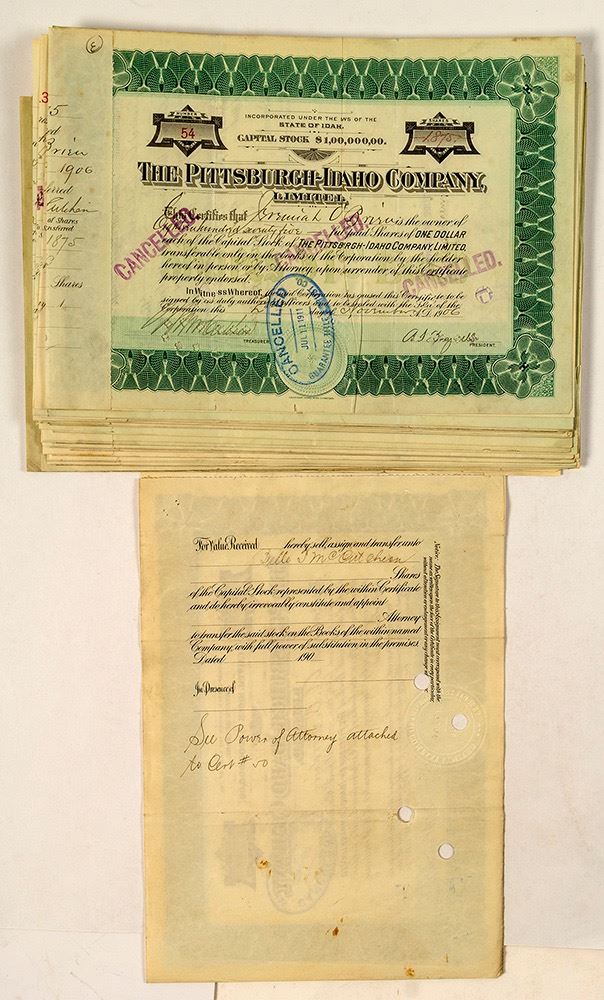 3
3
5
Brien
1906
Cutchen
of Shares
1875
Shares
NUMBER
54
INCORPORATED UNDER THE WS OF THE
STATE OF IDAH.
CAPITAL STOCK $1,00,000,00.
1875
THE PITTSBURGH-IDAHO COMPANY,
LIMITED,
Certifies that Jeremiah O'Brien is the owner of
hundred seventy five Shares of ONE DOLLAR
each of the Capital Stock of THE PITTSBRGH-IDAHO COMPANY, LIMITED,
transferable only on the books of the Corporation by the holder
hereof in person or by Attorney upon surrender of this Certificate
properly endorsed.
In Witness Whereof, the said Corporation has caused this Certificate to be
signed by its duly authorized officers and to be sealed with the Seal of the
Corporation this day of November A.D. 1906
TREASURER
PRESIDENT.
CANCELLED
CANCELLED
CANCELLED.
CANCELLED
JUL 11 1911
GUARANTEE
For Value Received hereby sell, assign and transfer unto
Belle J McCutchen
Shares
of the Capital Stock represented by the within Certificate
and do hereby irrevocably constitute and appoint
Attorney
to transfer the said stock on the Books of the within named
Company, with full power of substitution in the premises.
Dated 190
In Presence of
Notice. The Signature to this Assignment must correspond with the
name as written upon the face of the Certificate in every particular,
without alteration or enlargement or any change
See Power of Attorney attached
to Cert # 50